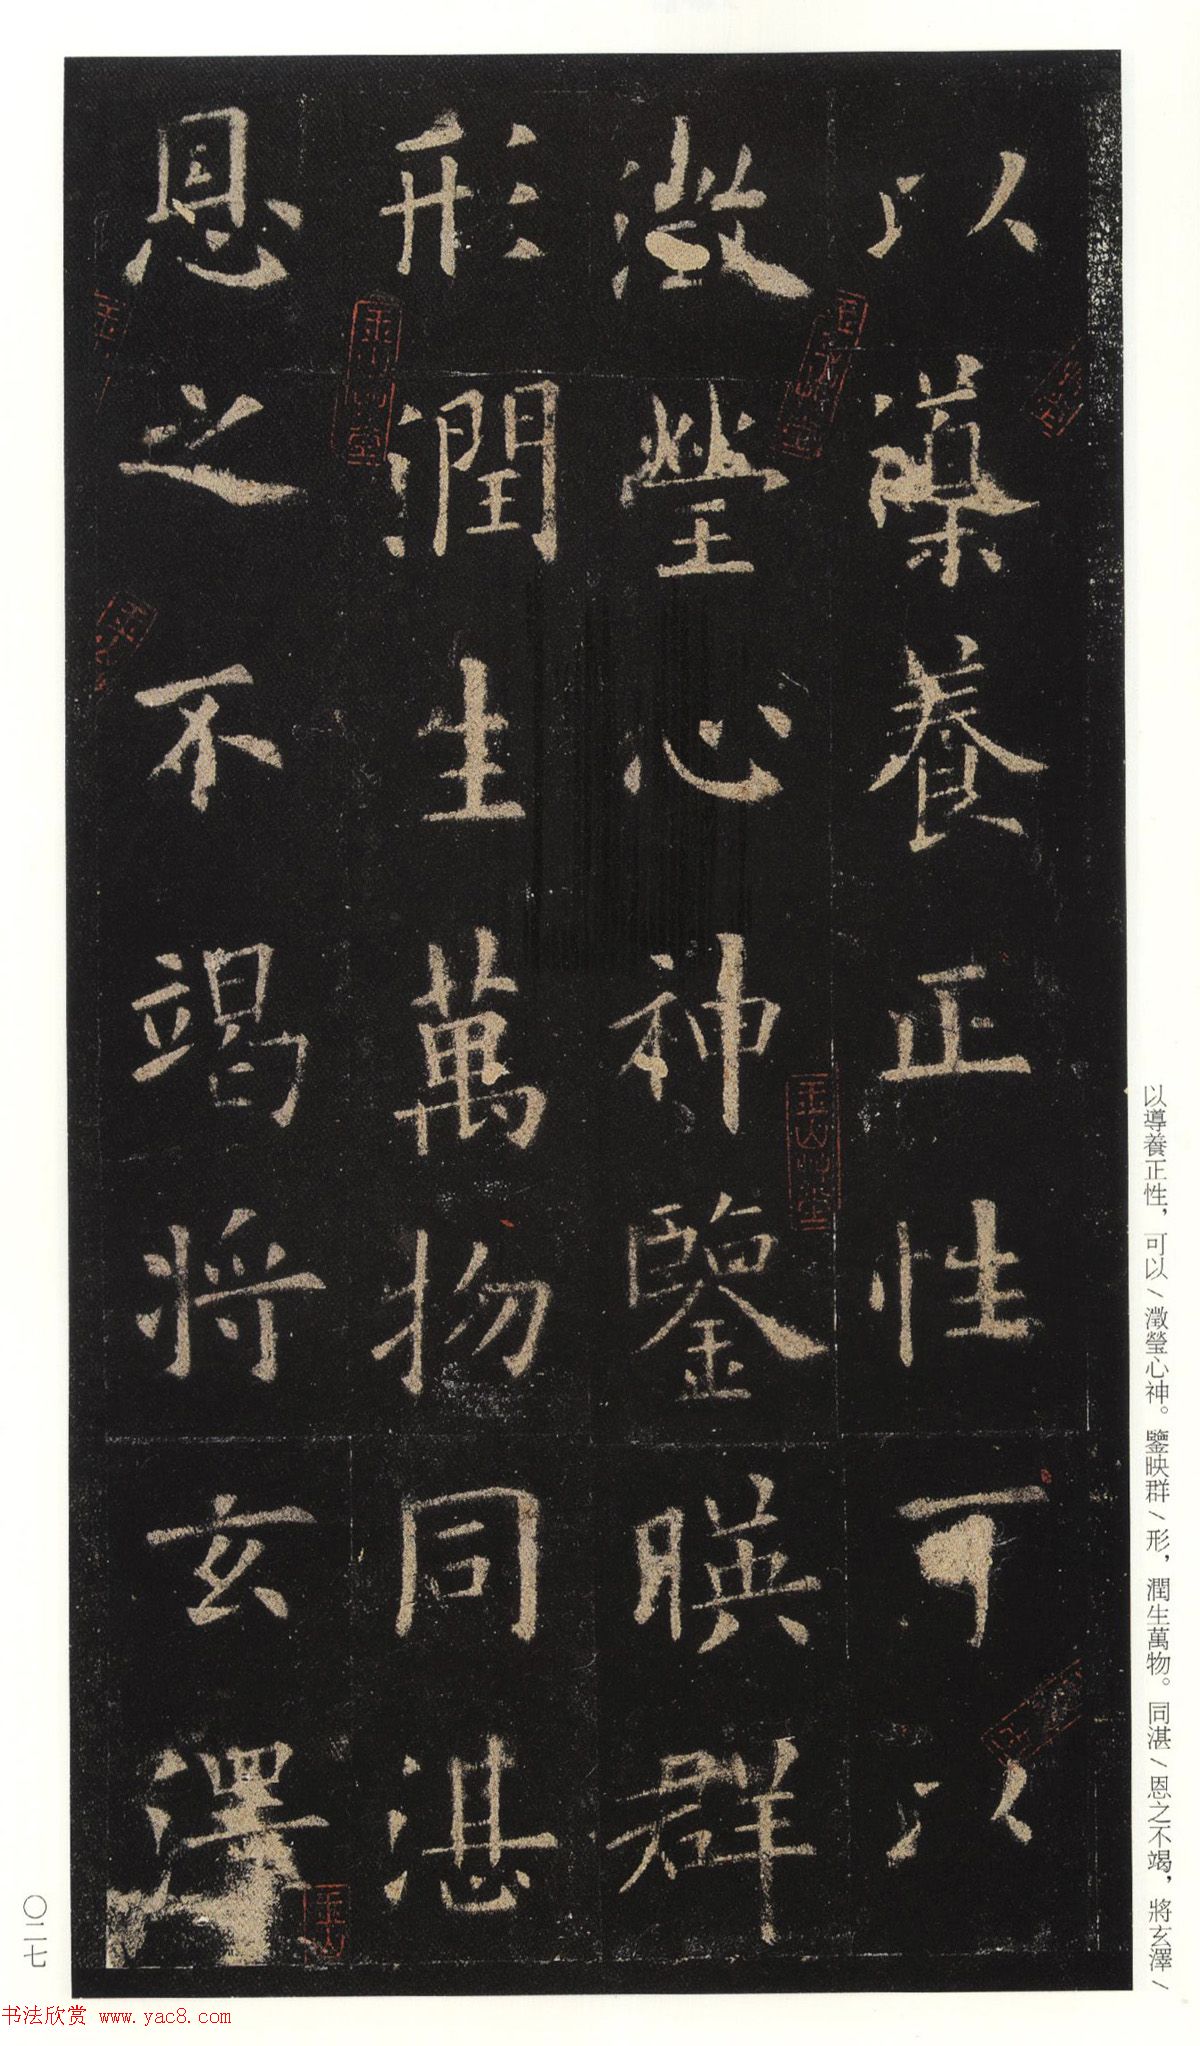 以導養正性可以
澂瑩心神鑒暎群
形潤生萬物同湛
恩之不竭將玄澤
以導養正性，可以\澂瑩心神。鑒映群\形，潤生萬物。同湛\恩之不竭，將玄澤\
〇二七
书法欣赏 www.yac8.com